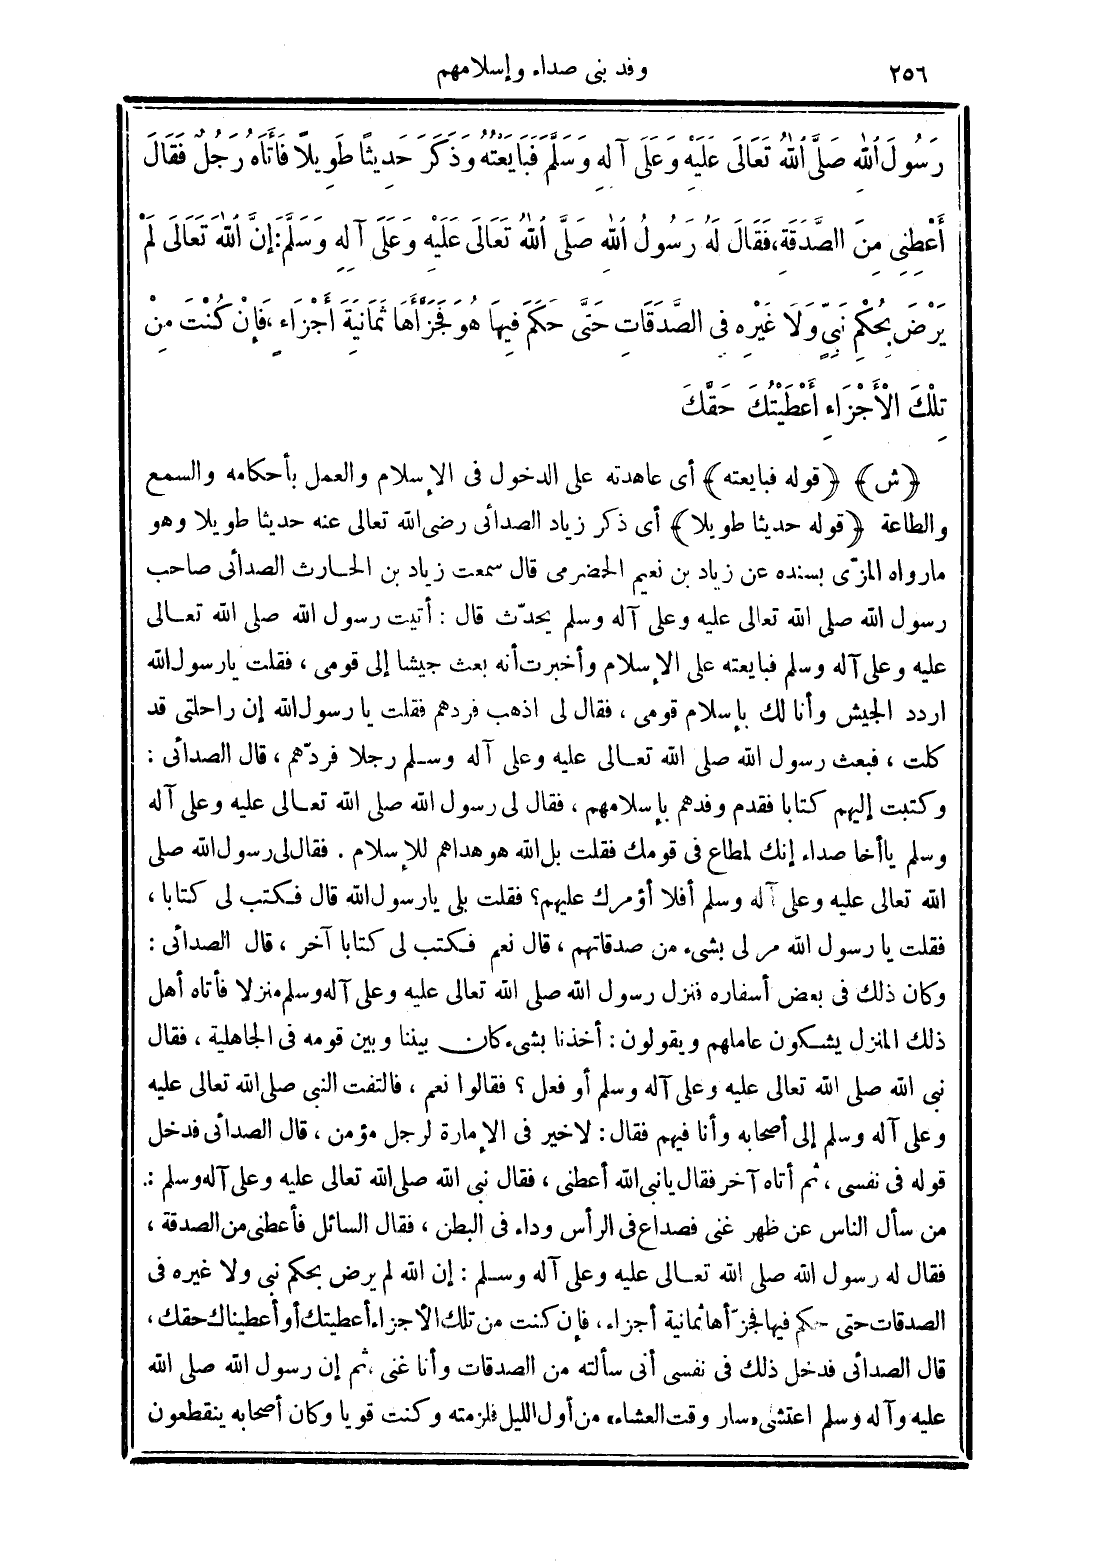 ٢٥٦ وفد بنى صداء وإسلامهم
رَسُولَ اللهِ صَلَّى اللهُ تَعَالَى عَلَيْهِ وَعَلَى آلِهِ وَسَلَّمَ فَبَايَعْتُهُ وَذَكَرَ حَدِيثًا طَوِيلًا فَأَتَاهُ رَجُلٌ فَقَالَ
أَعْطِنِى مِنَ الصَّدَقَةِ، فَقَالَ لَهُ رَسُولُ اللهِ صَلَّى اللهُ تَعَالَى عَلَيْهِ وَعَلَى آلِهِ وَسَلَّمَ: إِنَّ اللهَ تَعَالَى لَمْ
يَرْضَ بِحُكْمِ نَبِىٍّ وَلَا غَيْرِهِ فِى الصَّدَقَاتِ حَتَّى حَكَمَ فِيهَا هُوَ فَجَزَّأَهَا ثَمَانِيَةَ أَجْزَاءٍ، فَإِنْ كُنْتَ مِنْ
تِلْكَ الْأَجْزَاءِ أَعْطَيْتُكَ حَقَّكَ
﴿ش﴾ ﴿قوله فبايعته﴾ أى عاهدته على الدخول فى الإسلام والعمل بأحكامه والسمع
والطاعة ﴿قوله حديثا طويلا﴾ أى ذكر زياد الصدائى رضى الله تعالى عنه حديثا طويلا وهو
مارواه المزّى بسنده عن زياد بن نعيم الحضرمى قال سمعت زياد بن الحارث الصدائى صاحب
رسول الله صلى الله تعالى عليه وعلى آله وسلم يحدّث قال : أتيت رسول الله صلى الله تعالى
عليه وعلى آله وسلم فبايعته على الإسلام وأخبرت أنه بعث جيشا إلى قومى ، فقلت يارسول الله
اردد الجيش وأنا لك بإسلام قومى ، فقال لى اذهب فردهم فقلت يا رسول الله إن راحلتى قد
كلت ، فبعث رسول الله صلى الله تعالى عليه وعلى آله وسلم رجلا فردّهم ، قال الصدائى :
وكتبت إليهم كتابا فقدم وفدهم بإسلامهم ، فقال لى رسول الله صلى الله تعالى عليه وعلى آله
وسلم ياأخا صداء إنك لمطاع فى قومك فقلت بل الله هو هداهم للإسلام . فقال لى رسول الله صلى
الله تعالى عليه وعلى آله وسلم أفلا أؤمرك عليهم؟ فقلت بلى يارسول الله قال فكتب لى كتابا ،
فقلت يا رسول الله مر لى بشىء من صدقاتهم ، قال نعم فكتب لى كتابا آخر ، قال الصدائى :
وكان ذلك فى بعض أسفاره فنزل رسول الله صلى الله تعالى عليه وعلى آله وسلم منزلا فأتاه أهل
ذلك المنزل يشكون عاملهم ويقولون : أخذنا بشىء كان بيننا وبين قومه فى الجاهلية ، فقال
نبى الله صلى الله تعالى عليه وعلى آله وسلم أو فعل ؟ فقالوا نعم ، فالتفت النبى صلى الله تعالى عليه
وعلى آله وسلم إلى أصحابه وأنا فيهم فقال : لاخير فى الإمارة لرجل مؤمن ، قال الصدائى فدخل
قوله فى نفسى ، ثم أتاه آخر فقال يانبى الله أعطنى ، فقال نبى الله صلى الله تعالى عليه وعلى آله وسلم :
من سأل الناس عن ظهر غنى فصداع فى الرأس وداء فى البطن ، فقال السائل فأعطنى من الصدقة ،
فقال له رسول الله صلى الله تعالى عليه وعلى آله وسلم : إن الله لم يرض بحكم نبى ولا غيره فى
الصدقات حتى حكم فيها فجزّأها ثمانية أجزاء ، فإن كنت من تلك الأجزاء أعطيتك أو أعطيناك حقك ،
قال الصدائى فدخل ذلك فى نفسى أنى سألته من الصدقات وأنا غنى ، ثم إن رسول الله صلى الله
عليه وآله وسلم اعتشى «سار وقت العشاء» من أول الليل فلزمته وكنت قويا وكان أصحابه ينقطعون